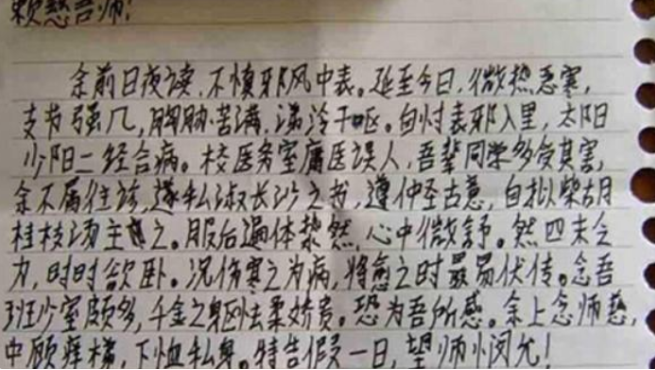 赖慈吾师！
余前日夜读，不慎邪风中表。延至今日，微热恶寒，
支节强几，胸胁苦满，涕泠干呕。自忖表邪入里，太阳
少阳二经合病。校医务室庸医误人，吾辈同学多受其害，
余不屑往诊，遂私淑长沙之书，遵仲圣古意，自拟柴胡
桂枝汤主之。服后遍体漐然，心中微舒。然四末乏
力，时时欲卧。况伤寒之为病，将愈之时最易伏传。念吾
班少室颇多，千金之躯怯柔娇贵。恐为吾所感。余上念师慈，
中顾庠横，下恤私身。特告假一日，望师悯允！